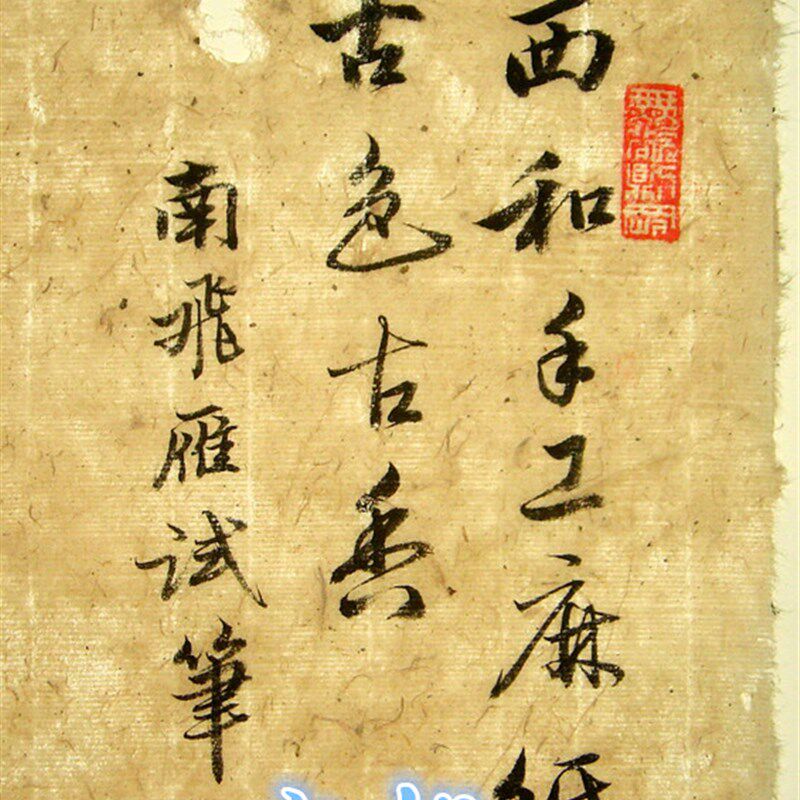 西和手工麻紙
古色古香
南飛雁试筆